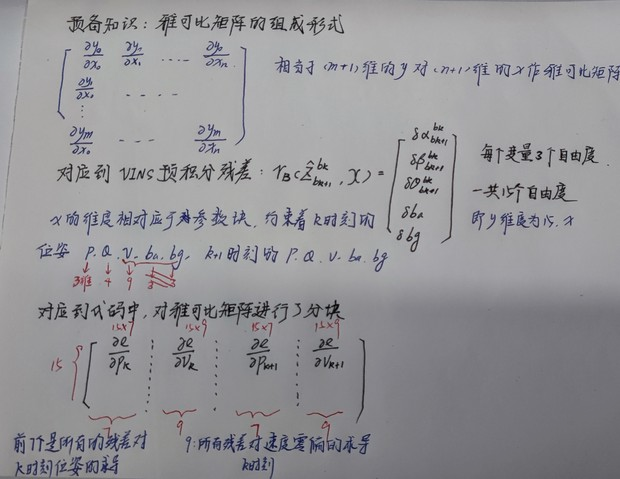 预备知识：雅可比矩阵的组成形式
∂y₀/∂x₀ ∂y₀/∂x₁ ···· ∂y₀/∂xₙ
∂y₁/∂x₀ - - - -
⋮
∂yₘ/∂x₀ - - - ∂yₘ/∂xₙ
相当于(m+1)维的y对(n+1)维的x作雅可比矩阵
对应到VINS预积分残差：r_B(ẑ^{bk}_{bk+1}, χ) =
δα^{bk}_{bk+1}
δβ^{bk}_{bk+1}
δθ^{bk}_{bk+1}
δba
δbg
每个变量3个自由度
一共15个自由度
即y维度为15. x
x的维度相对应于参数块, 约束着k时刻的
位姿 P. Q. V. ba. bg. k+1时刻的 P. Q. V. ba. bg
3维 4 9
对应到代码中, 对雅可比矩阵进行了分块
15×7 15×9 15×7 15×9
15 ∂e/∂Pk ∂e/∂Vk ∂e/∂Pk+1 ∂e/∂Vk+1
7 9 7 9
前7个是所有的残差对
k时刻位姿的求导
9:所有残差对速度零偏的求导
k时刻